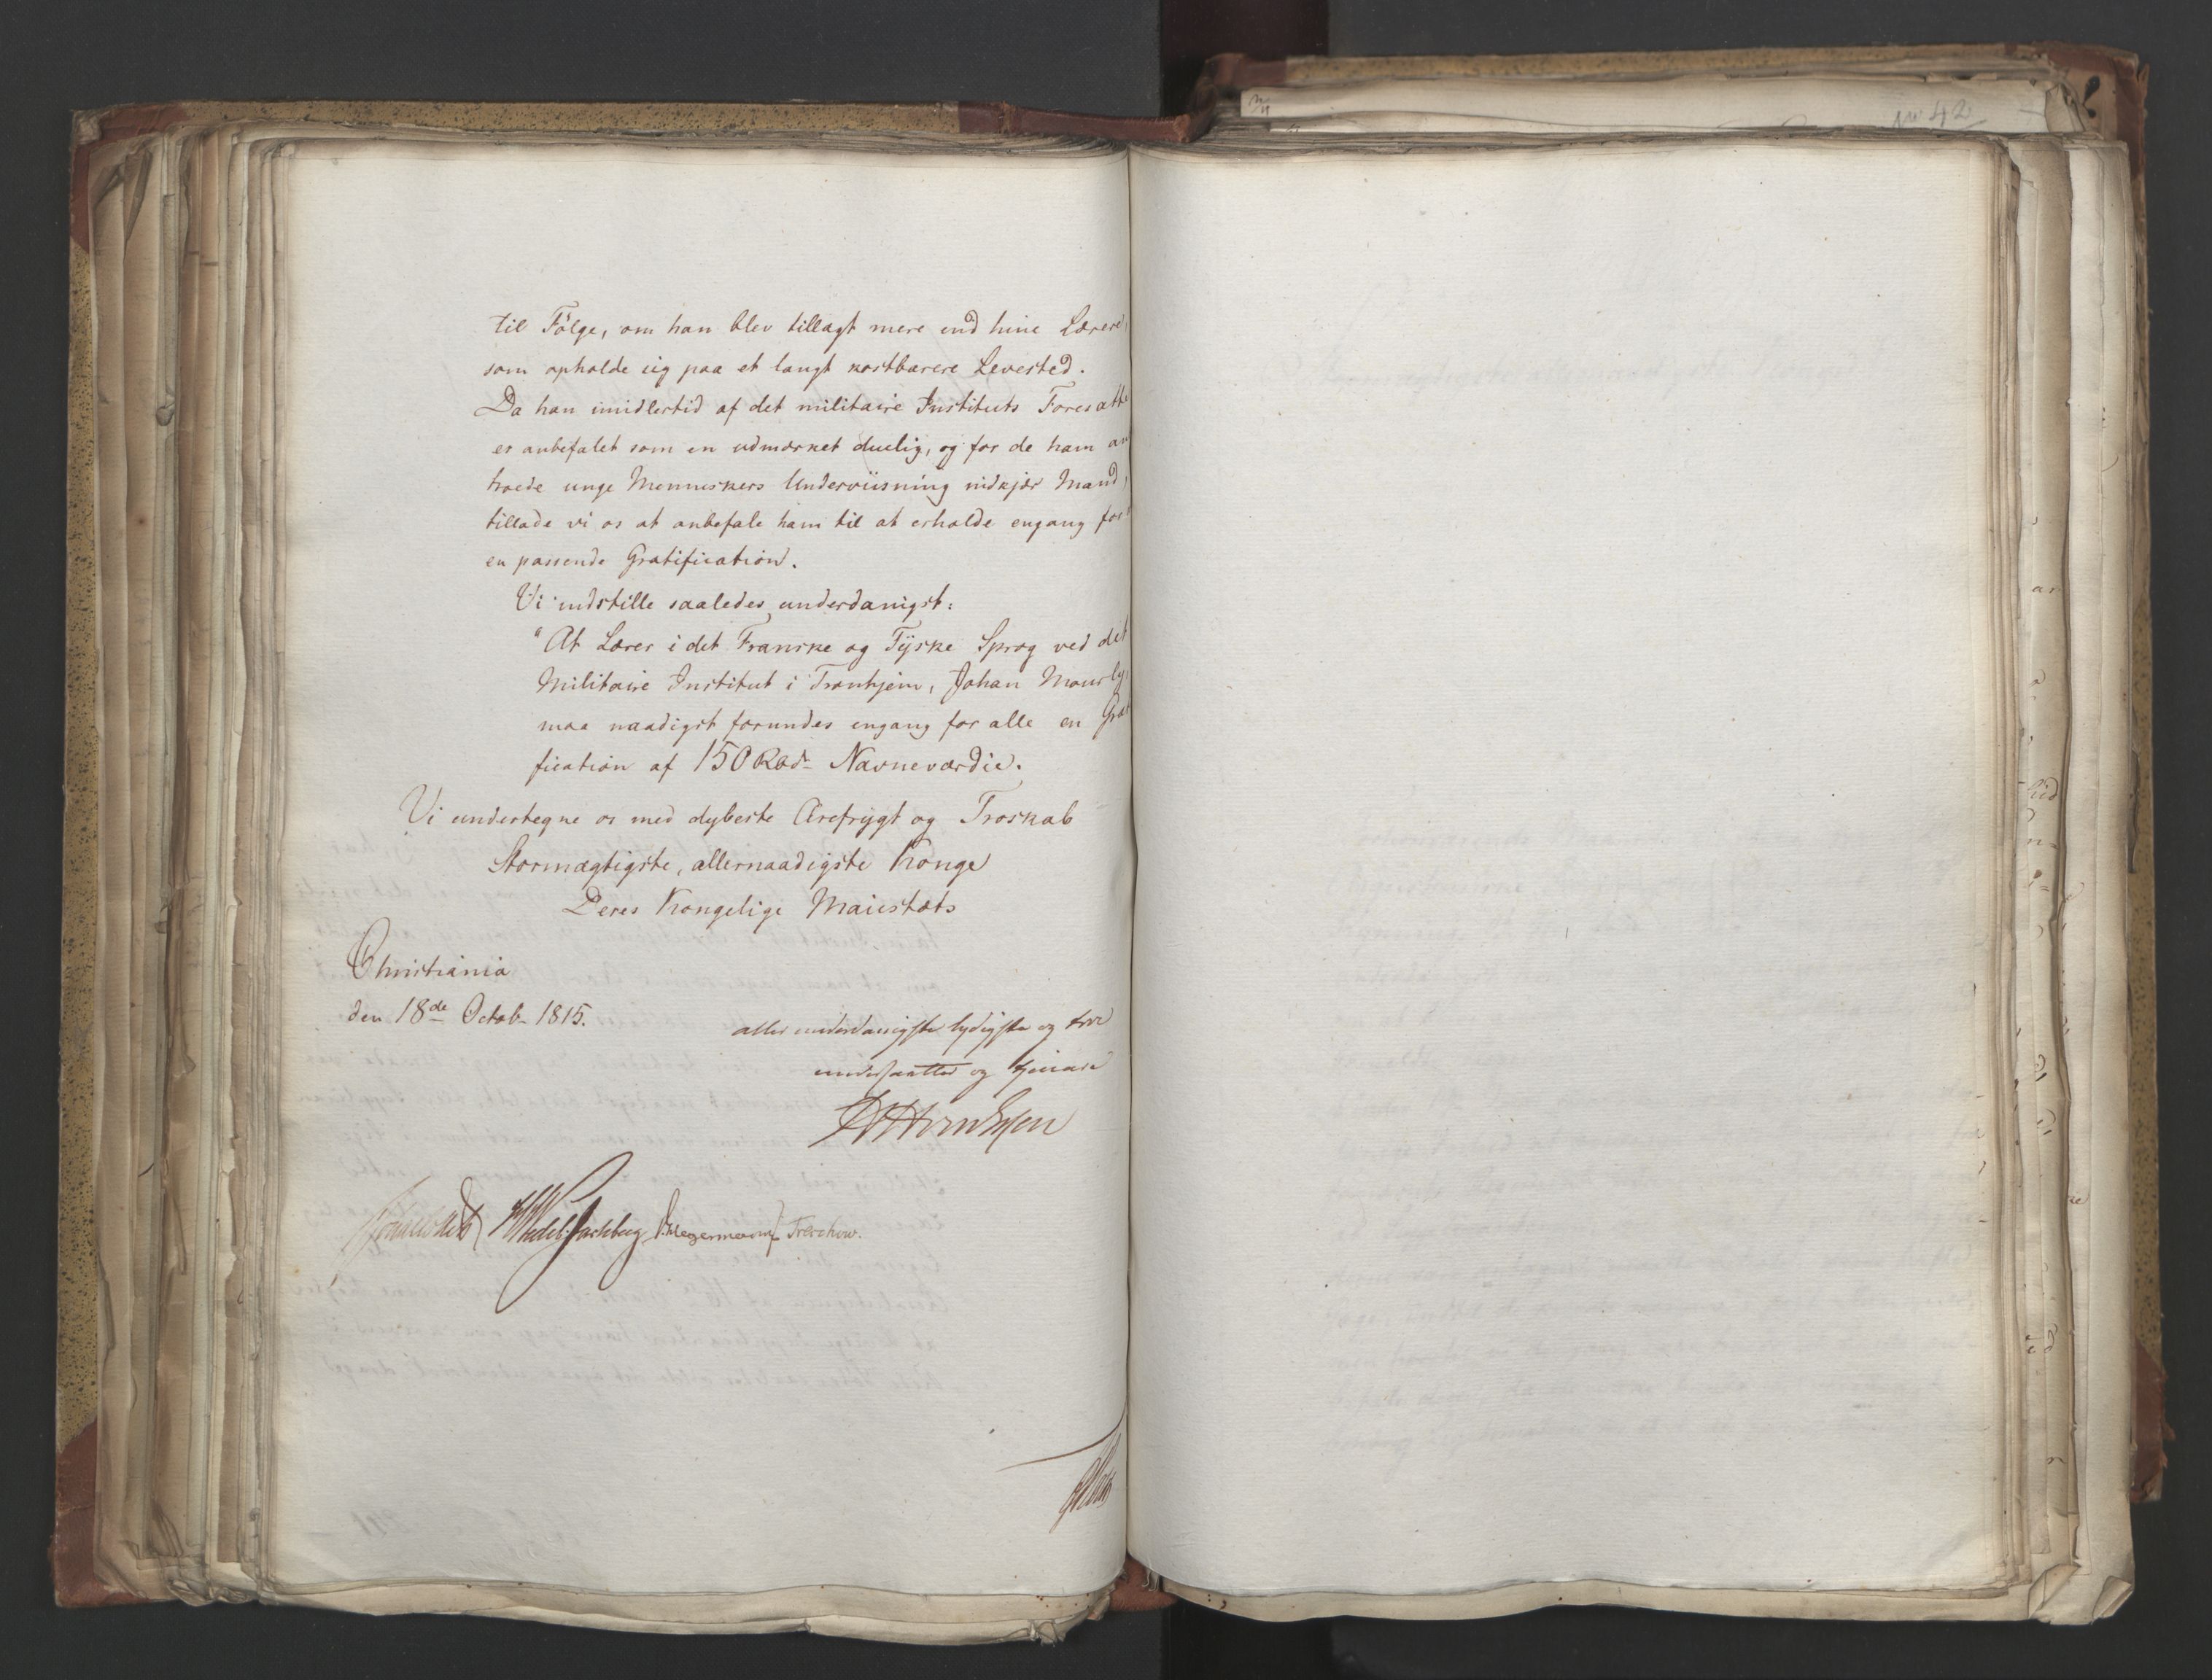 No 42
til Følge, om han blev tillagt mere end hine Lærere,
som opholde sig paa et langt kostbarere Levested.
Da han imidlertid af det militaire Instituts Foresatte
er anbefalet som en udmærket duelig, og for de ham an
troede unge Menneskers Underviisning nidkjær Mand,
tillade vi os at anbefale ham til at erholde engang for
en passende Gratification.
Vi indstille saaledes underdanigst:
"At Lærer i det Franske og Tÿske Sprog ved det
Militaire Institut i Tronhjem, Johan Mourly,
maa naadigst forundes engang for alle en Grat
fication af 150 Rbd. Navneværdie.
Vi undertegne os med dybeste Ærefrygt og Troskab
Stormægtigste, allernaadigste Konge
Deres Kongelige Maiestæts
Christiania
den 18de Octob. 1815.
allerunderdanigste lydigste og troe
undersaatter og tjenere
Sommerhielm HWedel Jarlsberg D. Hegermann Treschow.